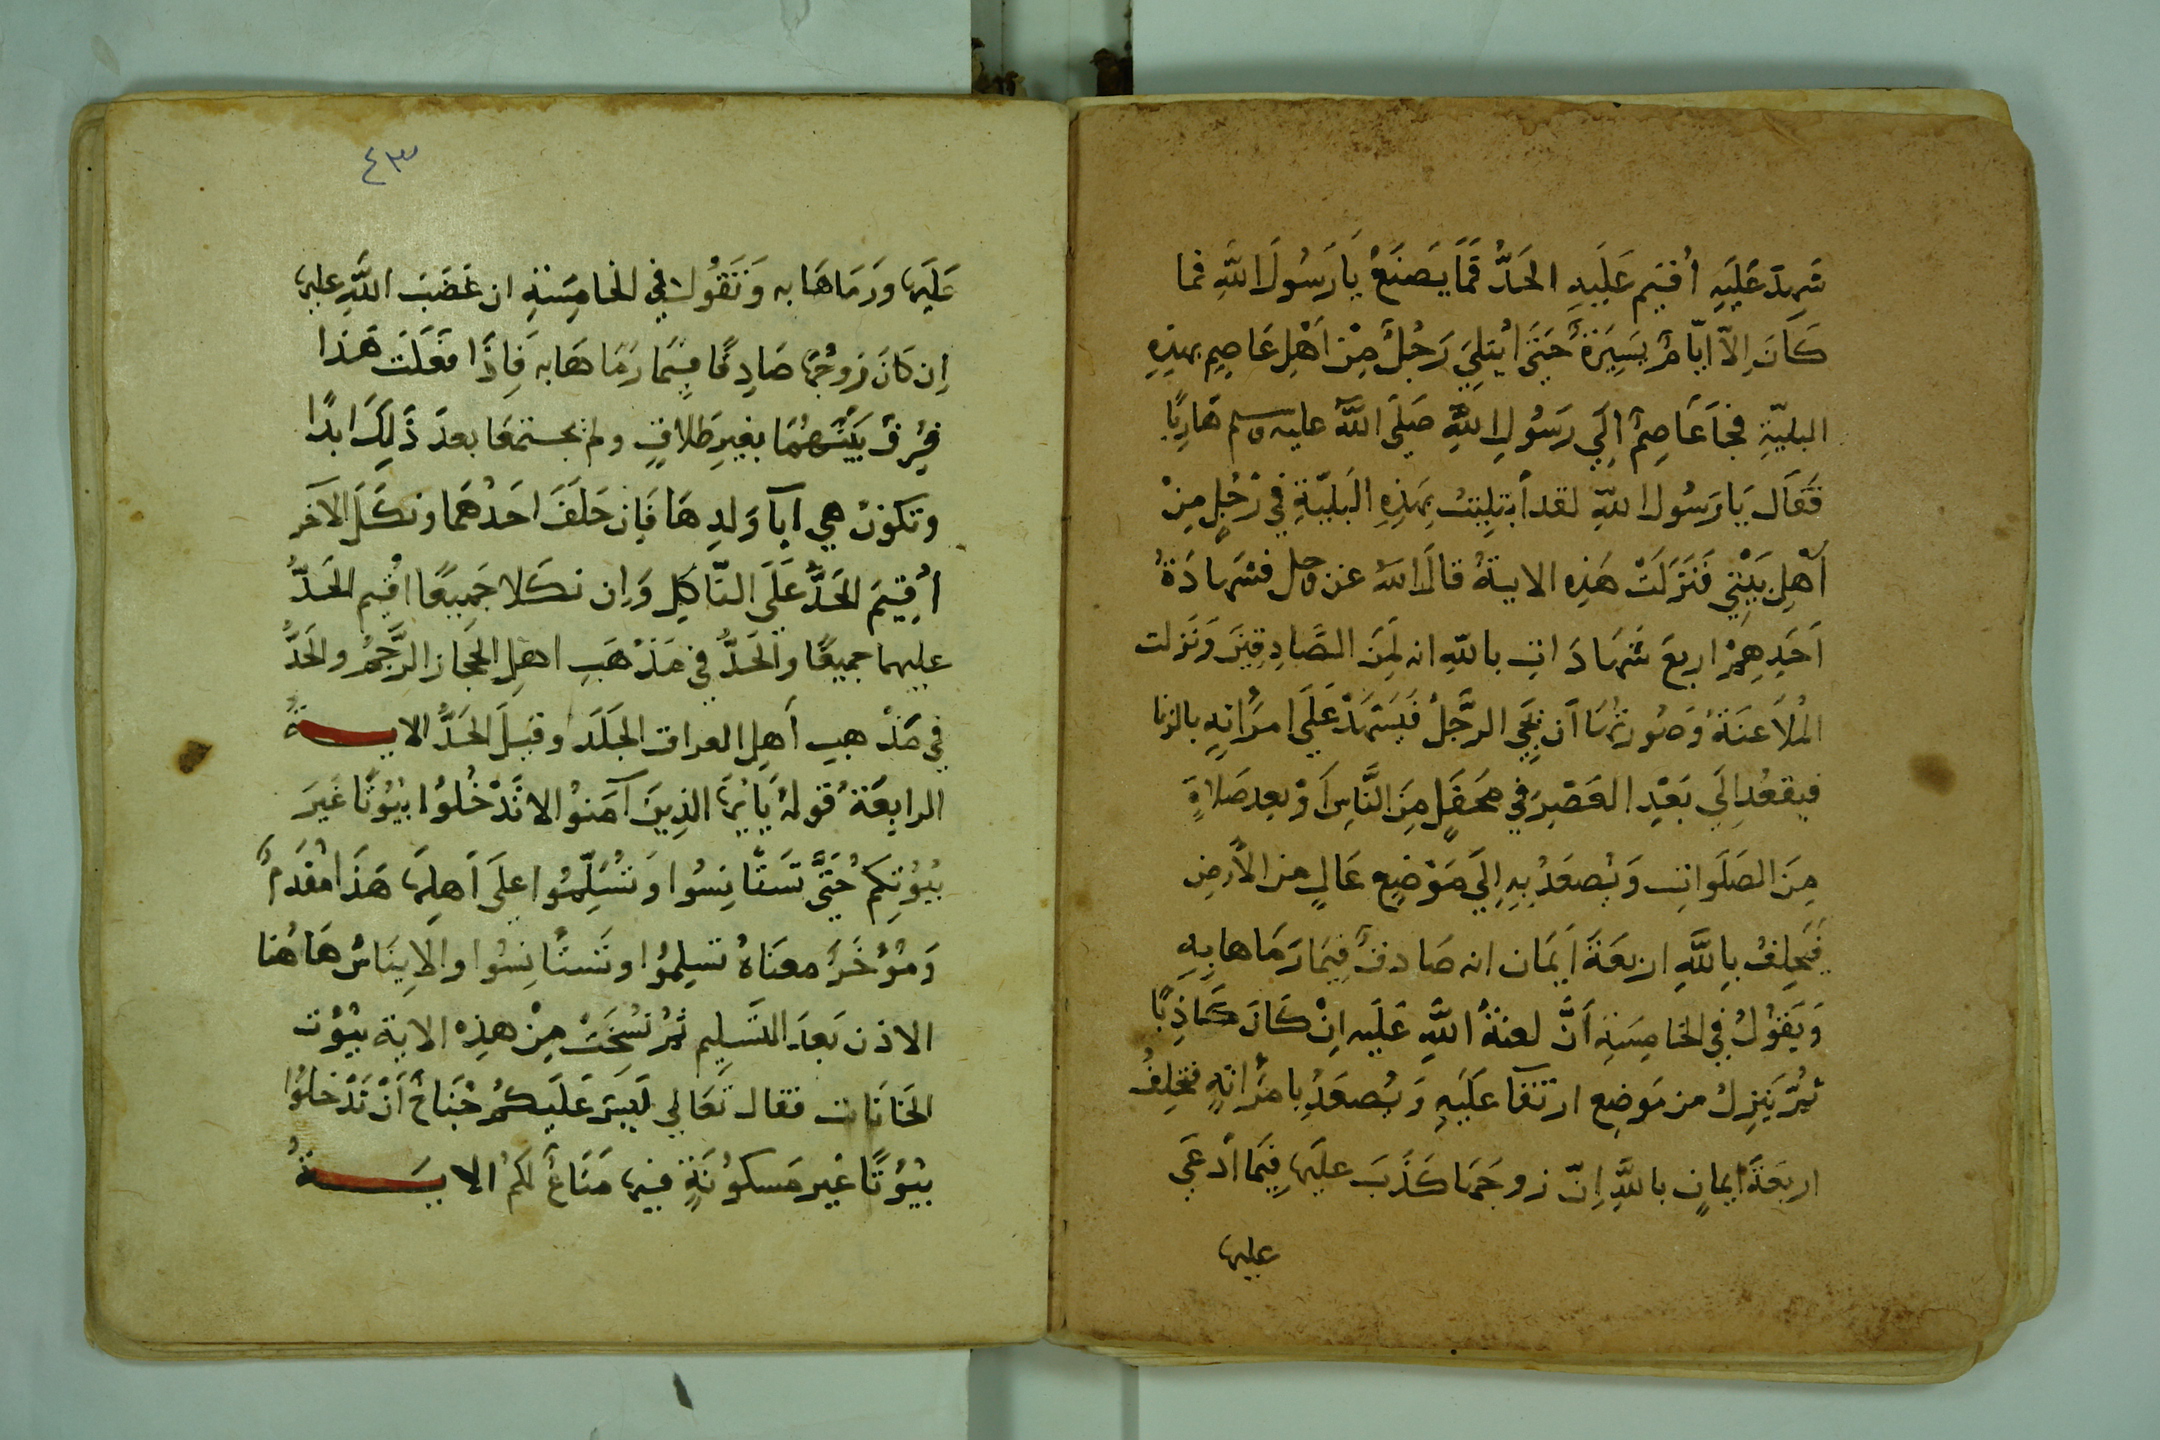 شَهِدَ عَلَيْهِ أُقيم عَلَيهِ الحَدُّ فَمَا يَصنَعُ يَا رَسُولَ اللَّهِ فما
كَانَ اِلاّ ايّامٌ يَسِيَرةٌ حَتَى ابْتِلِيَ رَجُلٌ مِنْ اَهْلِ عَاصِم بهذِهِ
البليّةِ فجاَ عَاصِمٌ اِلَي رَسُولِ اللَّهِ صَلَى اللَّهُ عليه وسلم هَارِبًا
فَقَالَ يَا رَسُول اللهِ لقد اُبتلِيتُ بِهَذِهِ البَليّةِ في رَجُلٍ مِنْ
اَهْلِ بَيْتِي فَنَزَلَتْ هَذِه الايةُ قالَ اللهُ عز وجل فشهادَةُ
اَحَدِهِمْ اربعَ شَهادَاتٍ باللهِ انه لَمِنَ الصَّادِقِينَ وَنَزلت
المُلاَعنَةُ وَصُورتُهَا أن يَجِيَ الرَّجُلُ فَيَشهَدْ عَلَي امرَأتِهِ بالزنا
فيقعُد اِلَي بَعْدِ العَصْرِ في مَحَفَلٍ مِنَ النَّاسِ اَوْ بعد صَلاةٍ
مِنَ الصَلَواتِ وَيُصعَدُ بِهِ اِلَي مَوْضِعٍ عَالٍ من الأرضِ
فَيَحلِفُ بِاللَّهِ اربَعَةَ اَيمَان انه صَادقٌ فِيمَا رَمَاها بِهِ
وَيَقوْلُ فِي الخامِسَةِ اَنَّ لعنةُ اللَّهِ عَلَيه اِنْ كَانَ كَاذِبًا
ثُمَّ يَنزِلُ من مَوضِعِ ارتَقَا عَلَيهِ وَيُصعَدُ بِامرَأتِهِ فتحلِفُ
اربعَةَ ايمانٍ باللَّهِ اِنّ زوجَهَا كَذَبَ عليَها فِيمَا اَدعَي
عليها
٤٣
عَليَها وَرَمَاهَا به وَتَقوْلُ في الخامِسَةِ ان غَضَبَ اللَّهِ عليها
اِن كَانَ زَوجُهَا صَادِقًا فِيمَا رَمَاهَا به فَاِذَا فَعَلَتْ هَذا
فُرِقَ بَيْنَهُمَا بغيرِ طَلاقٍ ولم يجتمعَا بعدَ ذَلِكَ ابدًا
وتكونُ هي اَبَا وَلدِهَا فَاِن حَلَفَ احَدُهُمَا ونكَلَ الآخَر
أُقِيَم الحَدُّ عَلَى النّاكِلِ وَاِن نكَلا جَمِيعًا اُقيم الحَدُّ
عليهما جميعًا والحَدُّ في مَذْهَبِ اهلِ الحِجاز الرَّجْمُ والحَدُّ
في مَذْهبِ أَهلِ العراق الجَلَد وقيلَ الحَدُّ الايــــةُ
الرابعَةُ قولهُ يَايُّهَا الذِينَ آمَنوُا لا تَدْخُلوُا بيُوُتًا غَيَر
بُيوُتِكم حَتَّى تَستَانِسُوا وَتُسَلِّموُا علَى اَهلِهَا هَذا مُقَدَمٌ
وَمُؤخَرٌ معنَاهُ تسلِموُا وتَستَأنِسُوا والاِينَاسُ هَاهُنا
الاذن بَعدَ التَسلِيم ثمُ نسُخَتْ مِنْ هذِه الاية بيُوُت
الخَانَات فقال تَعَالي لَيسَ عَلَيكُمْ جُنَاحٌ أنْ تَدْخلوُا
بيُوُتًا غير مَسكوُنَةٍ فيها مَتَاعٌ لَكُم الايــــةُ